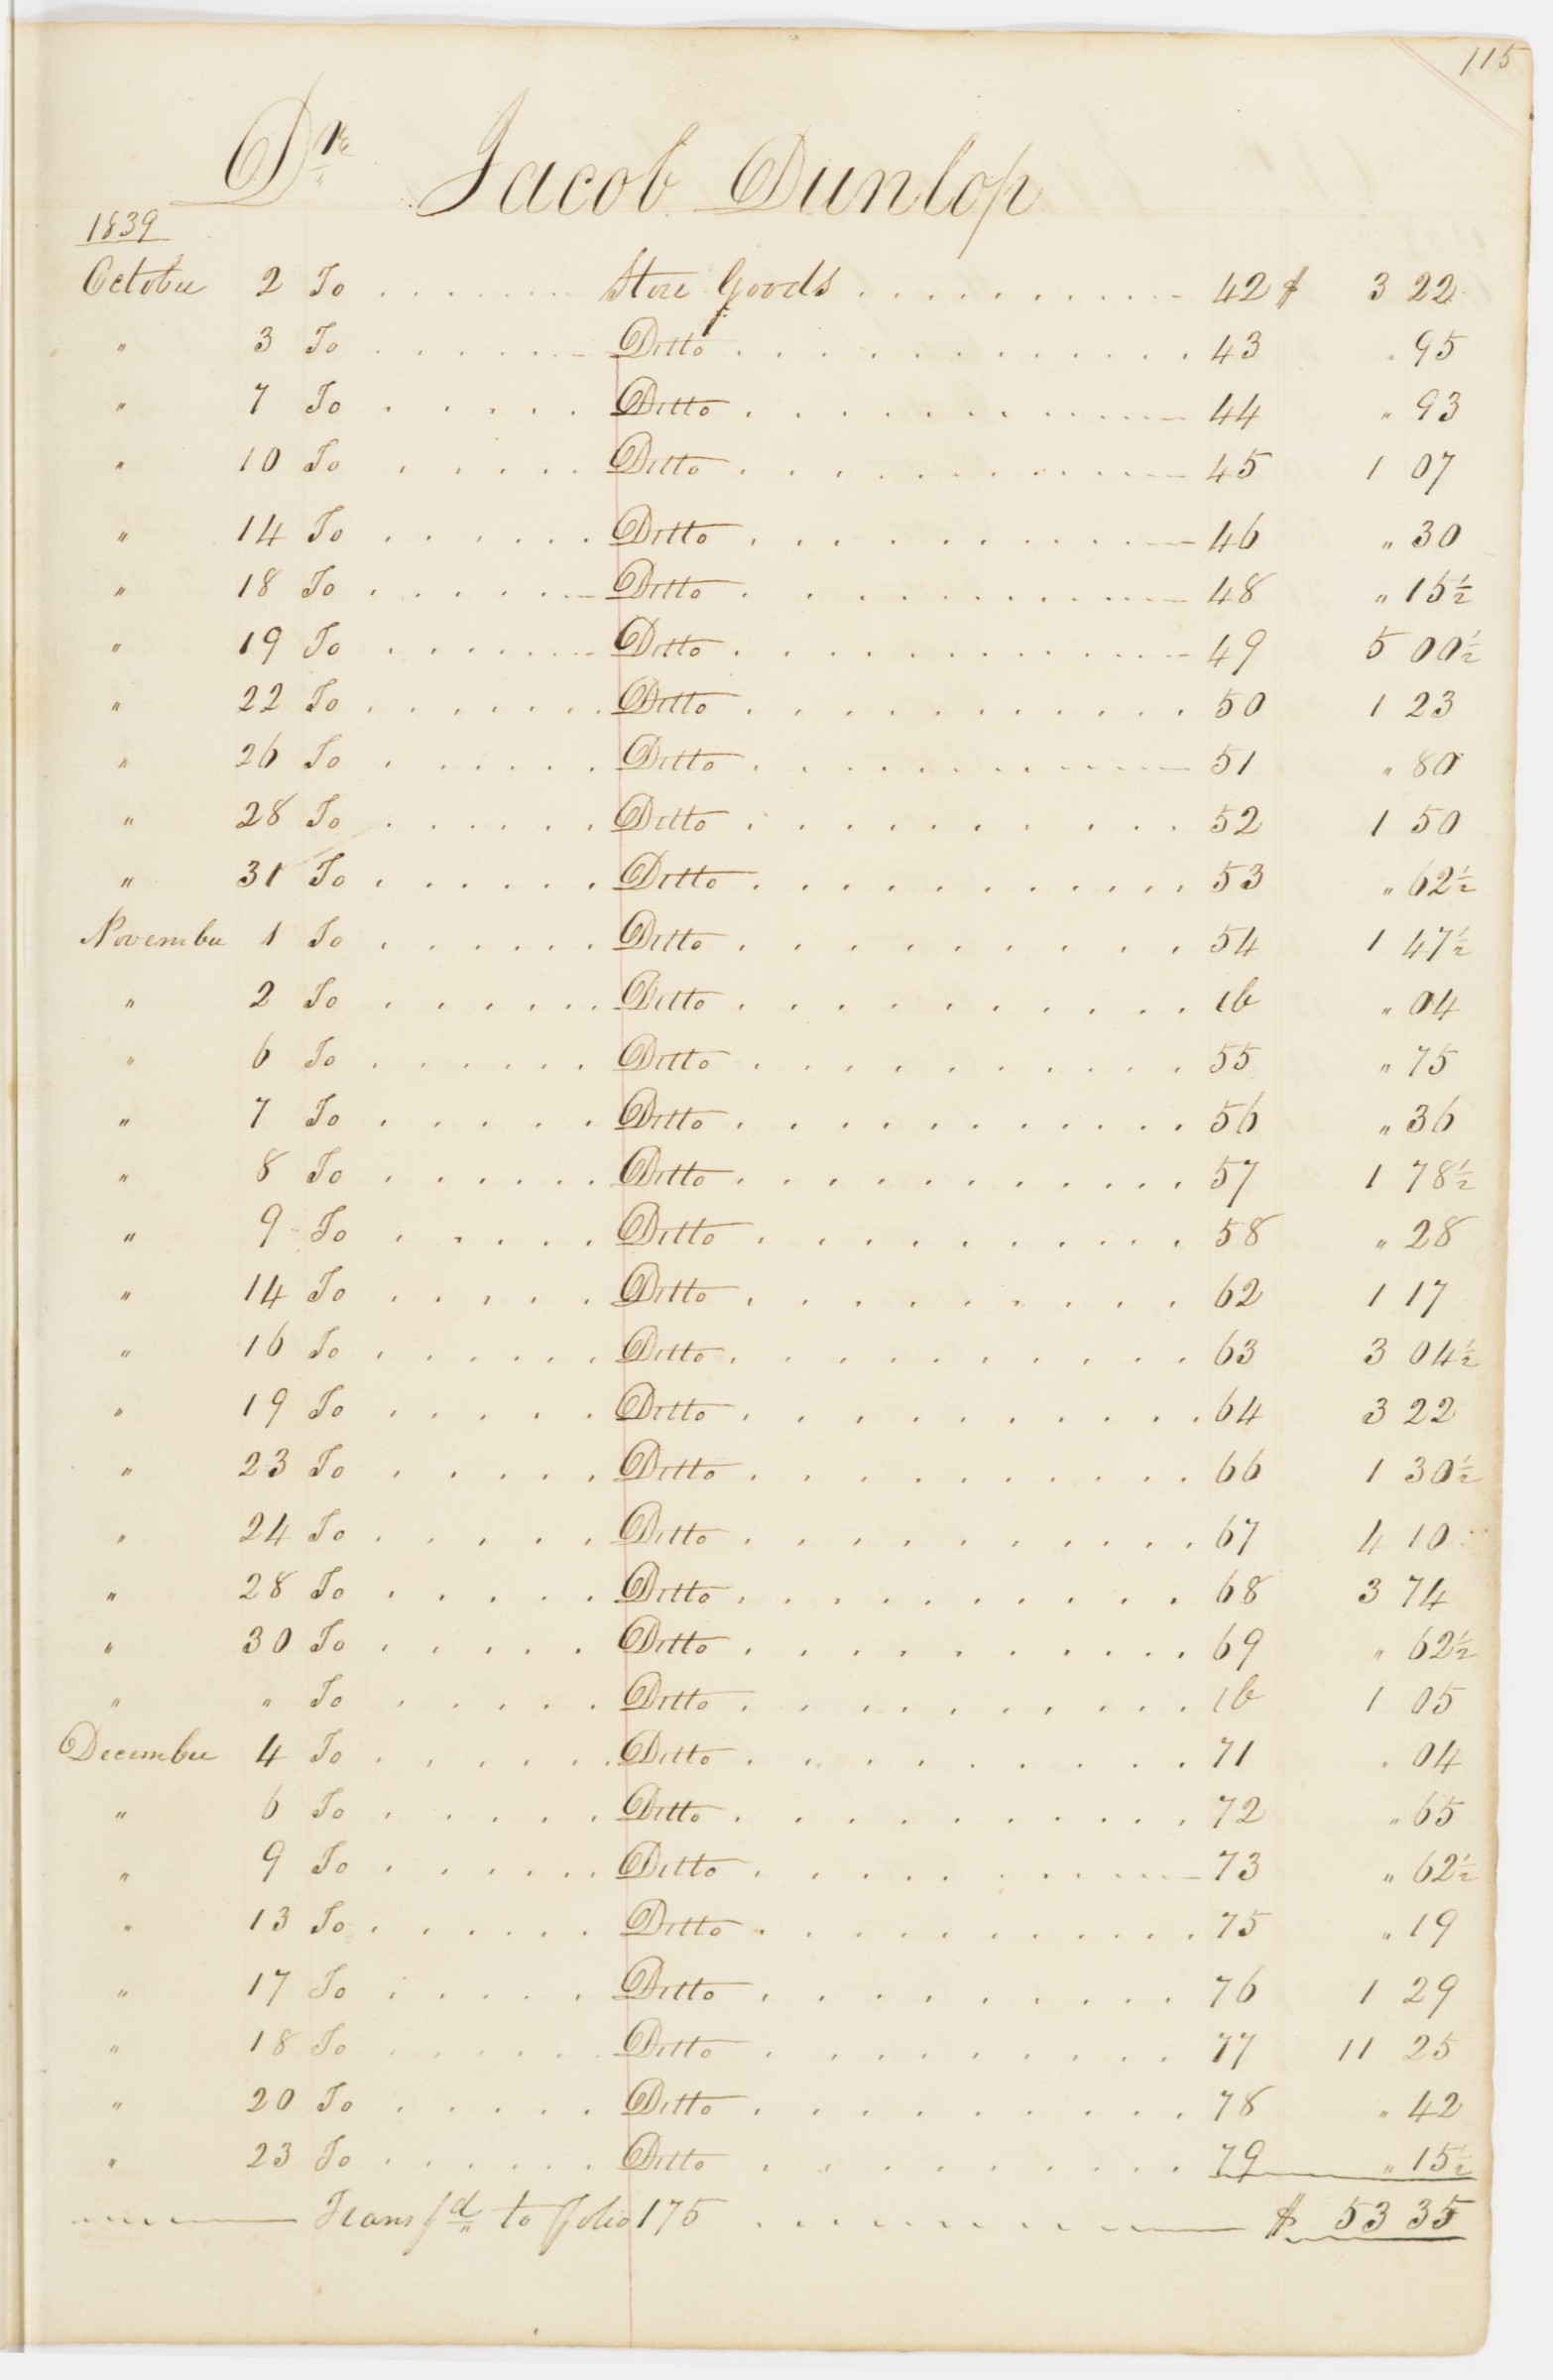 115
Dr. Jacob Dunlop
1839
October 2 To . . . . . . . Store Goods . . . . . . . . . . 42 $ 3 22
" 3 To . . . . . . . Ditto . . . . . . . . . . 43 " 95
" 7 To . . . . . Ditto . . . . . . . . . . 44 " 93
" 10 To . . . . . Ditto . . . . . . . . . . 45 1 07
" 14 To . . . . . . Ditto . . . . . . . . . . 46 " 30
" 18 To . . . . . . Ditto . . . . . . . . . . 48 " 15½
" 19 To . . . . . . Ditto . . . . . . . . . . 49 5 00½
" 22 To . . . . . . . Ditto . . . . . . . . . . 50 1 23
" 26 To . . . . . . Ditto . . . . . . . . . . 51 " 80
" 28 To . . . . . . Ditto . . . . . . . . . . 52 1 50
" 31 To . . . . . . Ditto . . . . . . . . . . 53 " 62½
November 1 To . . . . . . Ditto . . . . . . . . . . 54 1 47½
" 2 To . . . . . . Ditto . . . . . . . . . . ib " 04
" 6 To . . . . . . Ditto . . . . . . . . . . 55 " 75
" 7 To . . . . . Ditto . . . . . . . . . . 56 " 36
" 8 To . . . . . . Ditto . . . . . . . . . . 57 1 78½
" 9 To . . . . . Ditto . . . . . . . . . . 58 " 28
" 14 To . . . . . Ditto . . . . . . . . . . 62 1 17
" 16 To . . . . . . Ditto . . . . . . . . . . 63 3 04½
" 19 To . . . . . Ditto . . . . . . . . . . 64 3 22
" 23 To . . . . . Ditto . . . . . . . . . . 66 1 30½
" 24 To . . . . . Ditto . . . . . . . . . . 67 4 10
" 28 To . . . . . Ditto . . . . . . . . . . 68 3 74
" 30 To . . . . . Ditto . . . . . . . . . . 69 " 62½
" " To . . . . . Ditto . . . . . . . . . . ib 1 05
December 4 To . . . . . . Ditto . . . . . . . . . . 71 " 04
" 6 To . . . . . Ditto . . . . . . . . . . 72 " 65
" 9 To . . . . . . Ditto . . . . . . . . . . 73 " 62½
" 13 To . . . . . . Ditto . . . . . . . . . . 75 " 19
" 17 To . . . . . Ditto . . . . . . . . . . 76 1 29
" 18 To . . . . . . Ditto . . . . . . . . . . 77 11 25
" 20 To . . . . . Ditto . . . . . . . . . . 78 " 42
" 23 To . . . . . . Ditto . . . . . . . . . . 79 " 15½
Transfd to Folio 175 . . . . . . . . . . $ 53 35